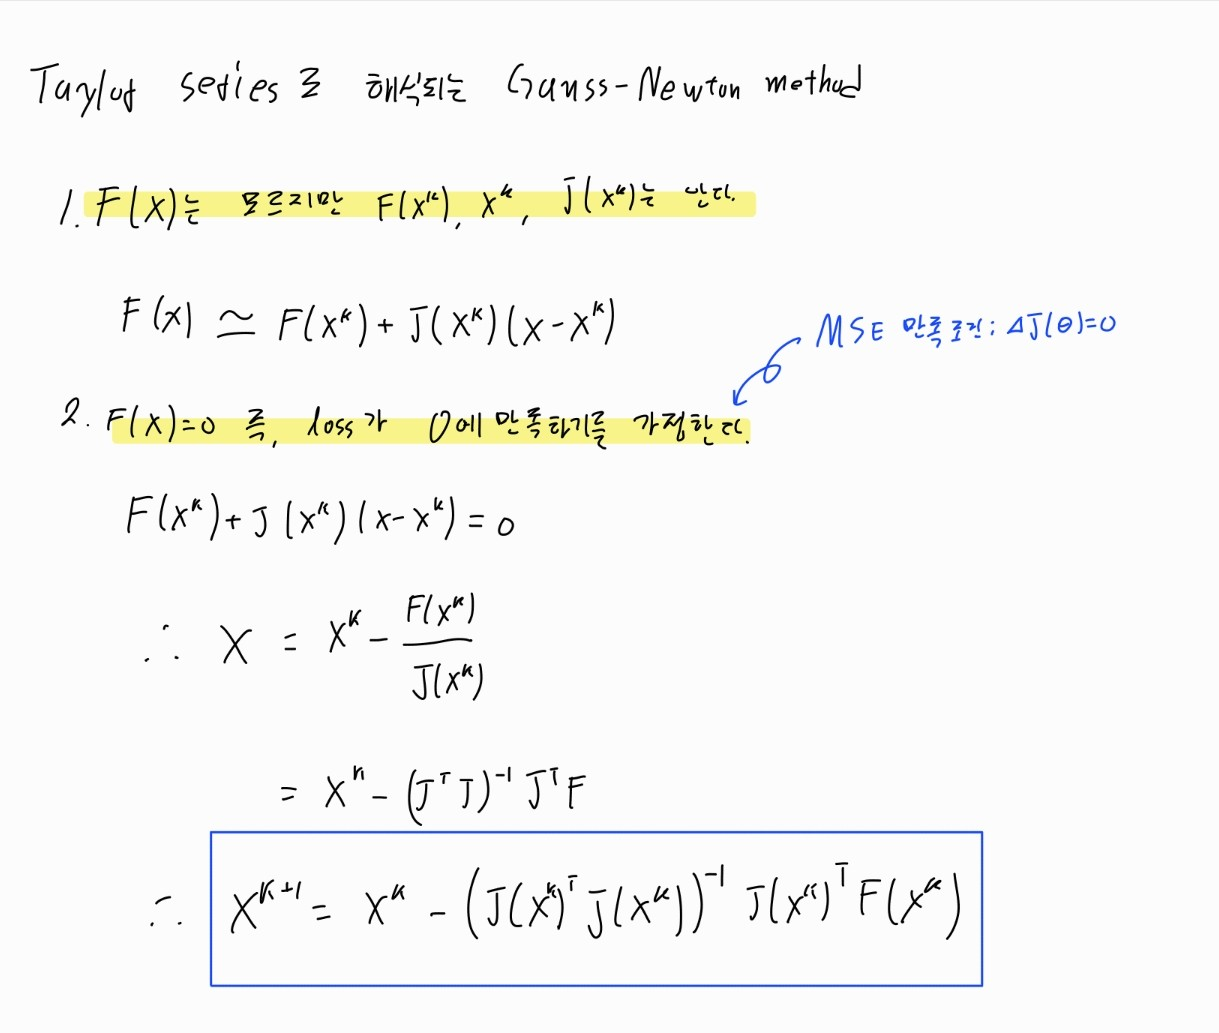 Taylor series로 해석되는 Gauss-Newton method
1. F(x)는 모르지만 F(xᵏ), xᵏ, J(xᵏ)는 안다.
F(x) ≃ F(xᵏ) + J(xᵏ)(x-xᵏ)
MSE 만족조건: ΔJ(θ)=0
2. F(x)=0 즉, loss가 0에 만족하기를 가정한다.
F(xᵏ) + J(xᵏ)(x-xᵏ) = 0
∴ x = xᵏ - F(xᵏ) / J(xᵏ)
= xᵏ - (JᵀJ)⁻¹ JᵀF
∴ xᵏ⁺¹ = xᵏ - (J(xᵏ)ᵀ J(xᵏ))⁻¹ J(xᵏ)ᵀ F(xᵏ)